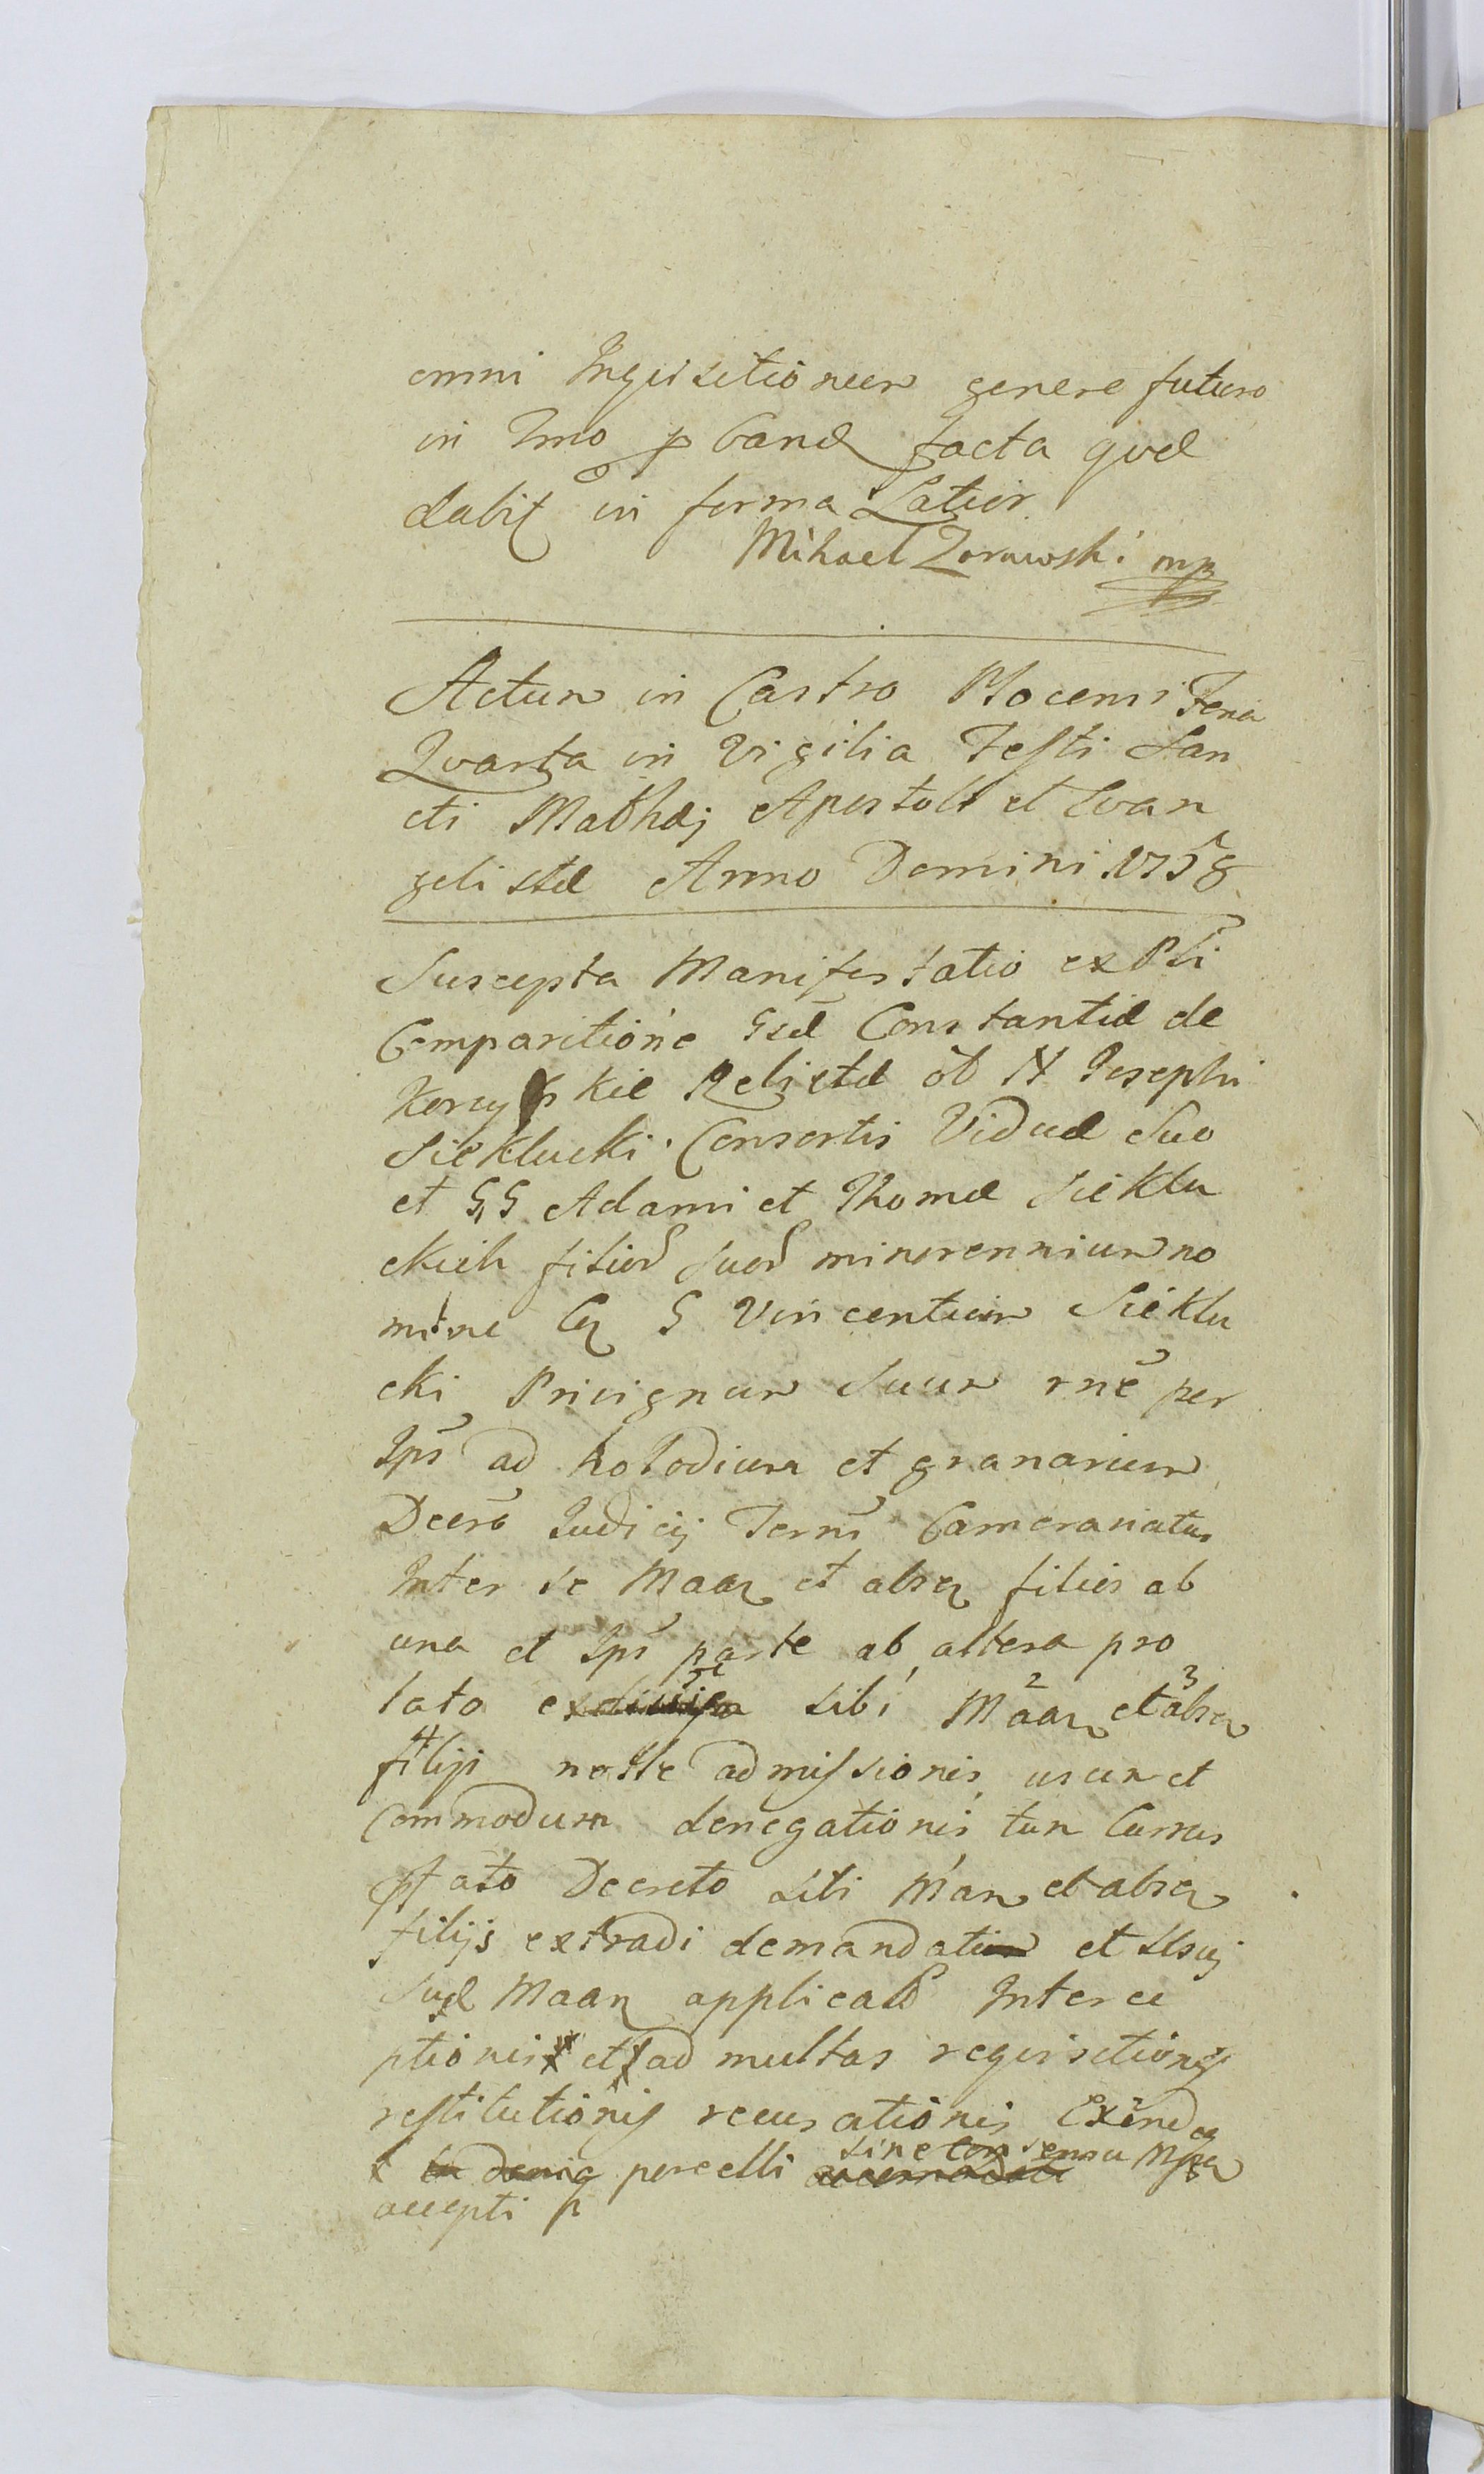 omni Inquisitionum genere futuro
in Tmo pbandæ facta quæ
dabit in forma Latior
Mihael Zorawski mp
Actum in Castro Plocensi Feria
Quarta in Vigilia Festi San
cti Mathæj Apostoli et Evan
gelistæ Anno Domini 1758
Suscepta Manifestatio ex Pli
Comparitione Gsæ Constantiæ de
Relictæ ol N Josephi
Sieklucki Consortis Viduæ Suo
et GG Adami et Thomæ Sieklu
ckich filior suor minorennium no
mine Cq G Vincentium Sieklu
cki Privignum Suum rne per
Ipm ad Kolodium et granarium
Decro Judicij Terris Camerariatus
Inter se Maan et absq filios ab
una et Ipm parte ab altera pro
lato sibi 2 Maan 3 et absq
4 filiji nottæ admissionis usum et
Commodum denegationis tum Currus
ptato Decreto sibi Man et absq
filijs extradi demandati et Usuj
suæ Maan applicati Interce
ptionis et ad multas requisitiones
restitutionis recusationis Exinde
denig porcelli sine consensu
accepti p